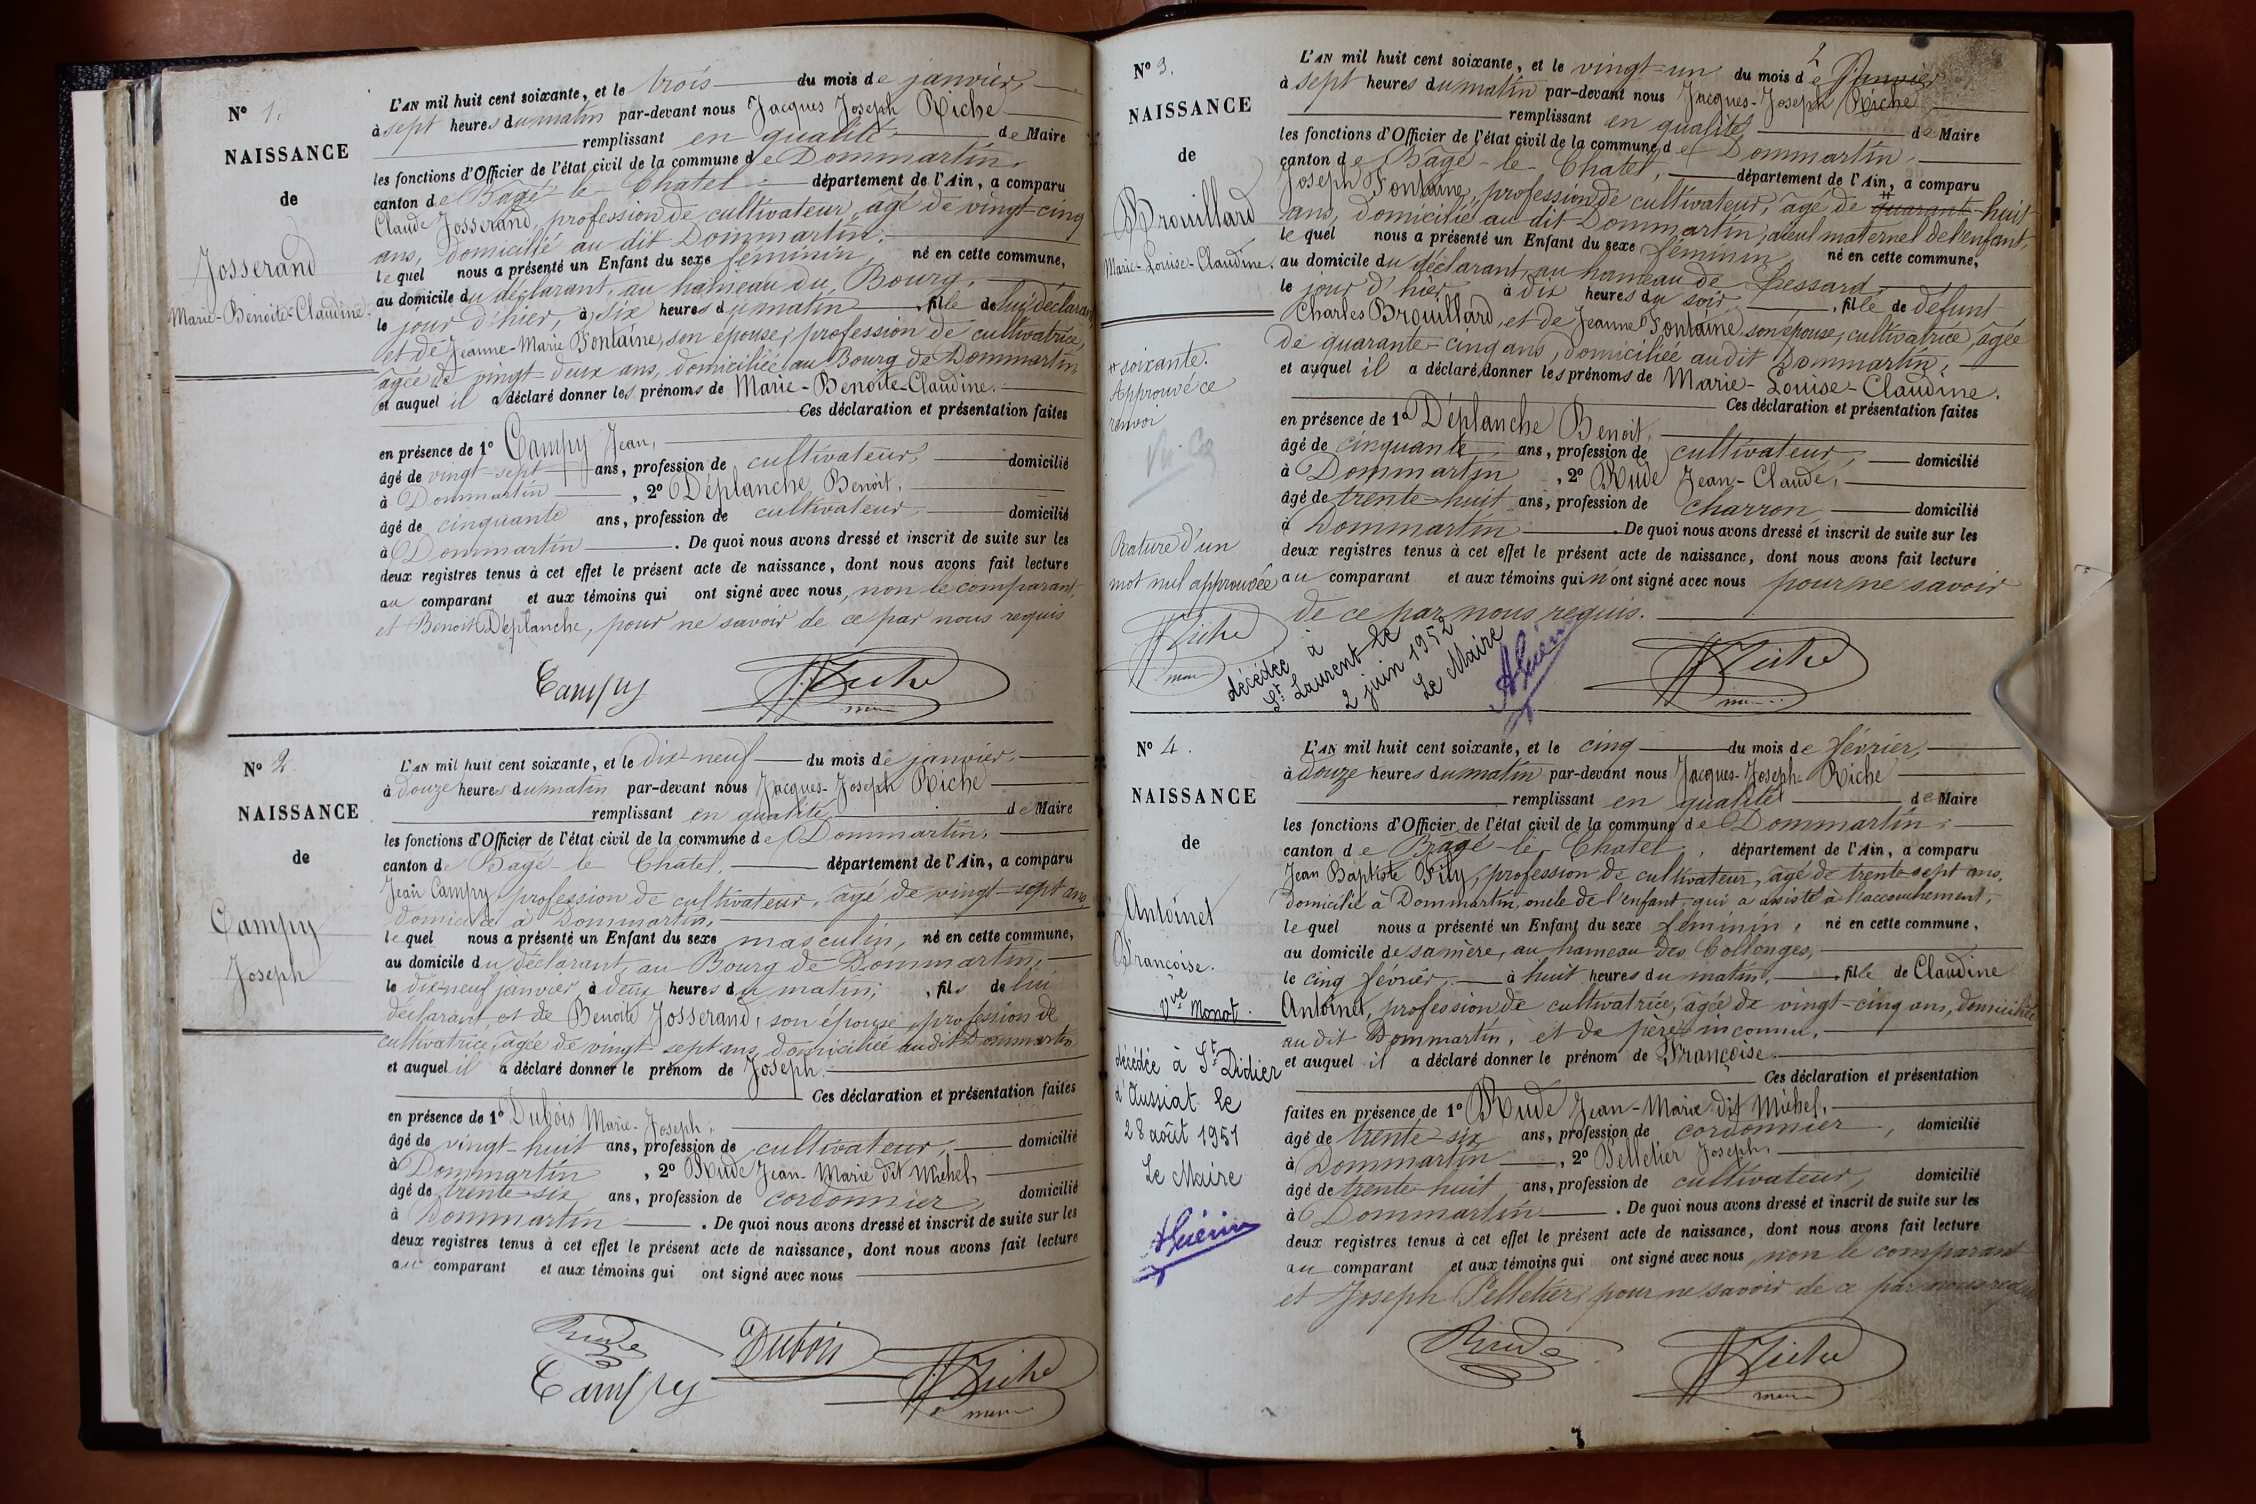 N° 1.
NAISSANCE
de
Josserand
Marie-Benoîte-Claudine.
L'AN mil huit cent soixante, et le trois du mois de janvier,
à sept heures du matin par-devant nous Jacques Joseph Riche
remplissant en qualité de Maire
les fonctions d'Officier de l'état civil de la commune de Dommartin,
canton de Bâgé-le-Chatel, département de l'Ain, a comparu
Claude Josserand, profession de cultivateur, âgé de vingt-cinq
ans, domicilié au dit Dommartin,
lequel nous a présenté un Enfant du sexe féminin, né en cette commune,
au domicile du déclarant, au hameau du Bourg,
le jour d'hier, à six heures du matin, fille de lui déclarant
et de Jeanne-Marie Fontaine, son épouse, profession de cultivatrice,
âgée de vingt-deux ans, domiciliée au Bourg de Dommartin
et auquel il a déclaré donner les prénoms de Marie-Benoîte-Claudine.
Ces déclaration et présentation faites
en présence de 1° Campy Jean,
âgé de vingt-sept ans, profession de cultivateur, domicilié
à Dommartin, 2° Déplanche Benoit,
âgé de cinquante ans, profession de cultivateur, domicilié
à Dommartin. De quoi nous avons dressé et inscrit de suite sur les
deux registres tenus à cet effet le présent acte de naissance, dont nous avons fait lecture
au comparant et aux témoins qui ont signé avec nous, non le comparant,
et Benoit Déplanche, pour ne savoir de ce par nous requis
Campy JJRiche
maire
N° 2.
NAISSANCE
de
Campy
Joseph
L'AN mil huit cent soixante, et le dix-neuf du mois de janvier,
à douze heures du matin par-devant nous Jacques-Joseph Riche
remplissant en qualité de Maire
les fonctions d'Officier de l'état civil de la commune de Dommartin,
canton de Bagé-le-Chatel, département de l'Ain, a comparu
Jean Campy, profession de cultivateur, âgé de vingt-sept ans
domicilié à Dommartin,
lequel nous a présenté un Enfant du sexe masculin, né en cette commune,
au domicile du déclarant, au Bourg de Dommartin,
le dix-neuf janvier à deux heures du matin, fils de lui
déclarant, et de Benoite Josserand, son épouse, profession de
cultivatrice, âgée de vingt-sept ans, domiciliée audit Dommartin
et auquel il a déclaré donner le prénom de Joseph.
Ces déclaration et présentation faites
en présence de 1° Dubois Marie-Joseph,
âgé de vingt-huit ans, profession de cultivateur, domicilié
à Dommartin, 2° Rude Jean-Marie dit Michel,
âgé de trente-six ans, profession de cordonnier, domicilié
à Dommartin. De quoi nous avons dressé et inscrit de suite sur les
deux registres tenus à cet effet le présent acte de naissance, dont nous avons fait lecture
au comparant et aux témoins qui ont signé avec nous
Rude Dubois
Campy JJRiche
maire
N° 3.
NAISSANCE
de
Brouillard
Marie-Louise-Claudine.
# soixante.
Approuvé ce
renvoi
Rature d'un
mot nul approuvée
JJRiche
maire
L'AN mil huit cent soixante, et le vingt-un du mois de Janvier
à sept heures du matin par-devant nous Jacques-Joseph Riche
remplissant en qualité de Maire
les fonctions d'Officier de l'état civil de la commune de Dommartin,
canton de Bâgé-le-Chatel, département de l'Ain, a comparu
Joseph Fontaine, profession de cultivateur, âgé de # quarante-huit
ans, domicilié au dit Dommartin, aïeul maternel de l'enfant,
lequel nous a présenté un Enfant du sexe féminin, né en cette commune,
au domicile du déclarant, au hameau de Chessard,
le jour d'hier à dix heures du soir, fille de défunt
Charles Brouillard, et de Jeanne Fontaine son épouse, cultivatrice, âgée
de quarante-cinq ans, domiciliée au dit Dommartin,
et auquel il a déclaré donner les prénoms de Marie-Louise-Claudine.
Ces déclaration et présentation faites
en présence de 1° Déplanche Benoit,
âgé de cinquante ans, profession de cultivateur, domicilié
à Dommartin, 2° Rude Jean-Claude,
âgé de trente-huit ans, profession de charron, domicilié
à Dommartin. De quoi nous avons dressé et inscrit de suite sur les
deux registres tenus à cet effet le présent acte de naissance, dont nous avons fait lecture
au comparant et aux témoins qui n'ont signé avec nous pour ne savoir
de ce par nous requis.
décédée à
St Laurent le
2 juin 1952
Le Maire
AGuérin
JJRiche
maire
N° 4.
NAISSANCE
de
Antoinet
Françoise.
Vve Monot.
décédée à St Didier
d'Aussiat le
28 août 1951
Le Maire
AGuérin
L'AN mil huit cent soixante, et le cinq du mois de février,
à douze heures du matin par-devant nous Jacques-Joseph Riche
remplissant en qualité de Maire
les fonctions d'Officier de l'état civil de la commune de Dommartin,
canton de Bâgé-le-Chatel, département de l'Ain, a comparu
Jean Baptiste Fily, profession de cultivateur, âgé de trente-sept ans,
domicilié à Dommartin, oncle de l'enfant, qui a assisté à l'accouchement,
lequel nous a présenté un Enfant du sexe féminin, né en cette commune,
au domicile de sa mère, au hameau des Collonges,
le cinq février, à huit heures du matin, fille de Claudine
Antoinet, profession de cultivatrice, âgée de vingt-cinq ans, domiciliée
au dit Dommartin, et de père inconnu,
et auquel il a déclaré donner le prénom de Françoise.
Ces déclaration et présentation
faites en présence de 1° Rude Jean-Marie dit Michel,
âgé de trente-six ans, profession de cordonnier, domicilié
à Dommartin, 2° Pelletier Joseph,
âgé de trente-huit ans, profession de cultivateur, domicilié
à Dommartin. De quoi nous avons dressé et inscrit de suite sur les
deux registres tenus à cet effet le présent acte de naissance, dont nous avons fait lecture
au comparant et aux témoins qui ont signé avec nous non le comparant
et Joseph Pelletier, pour ne savoir de ce par nous requis
Rude JJRiche
maire